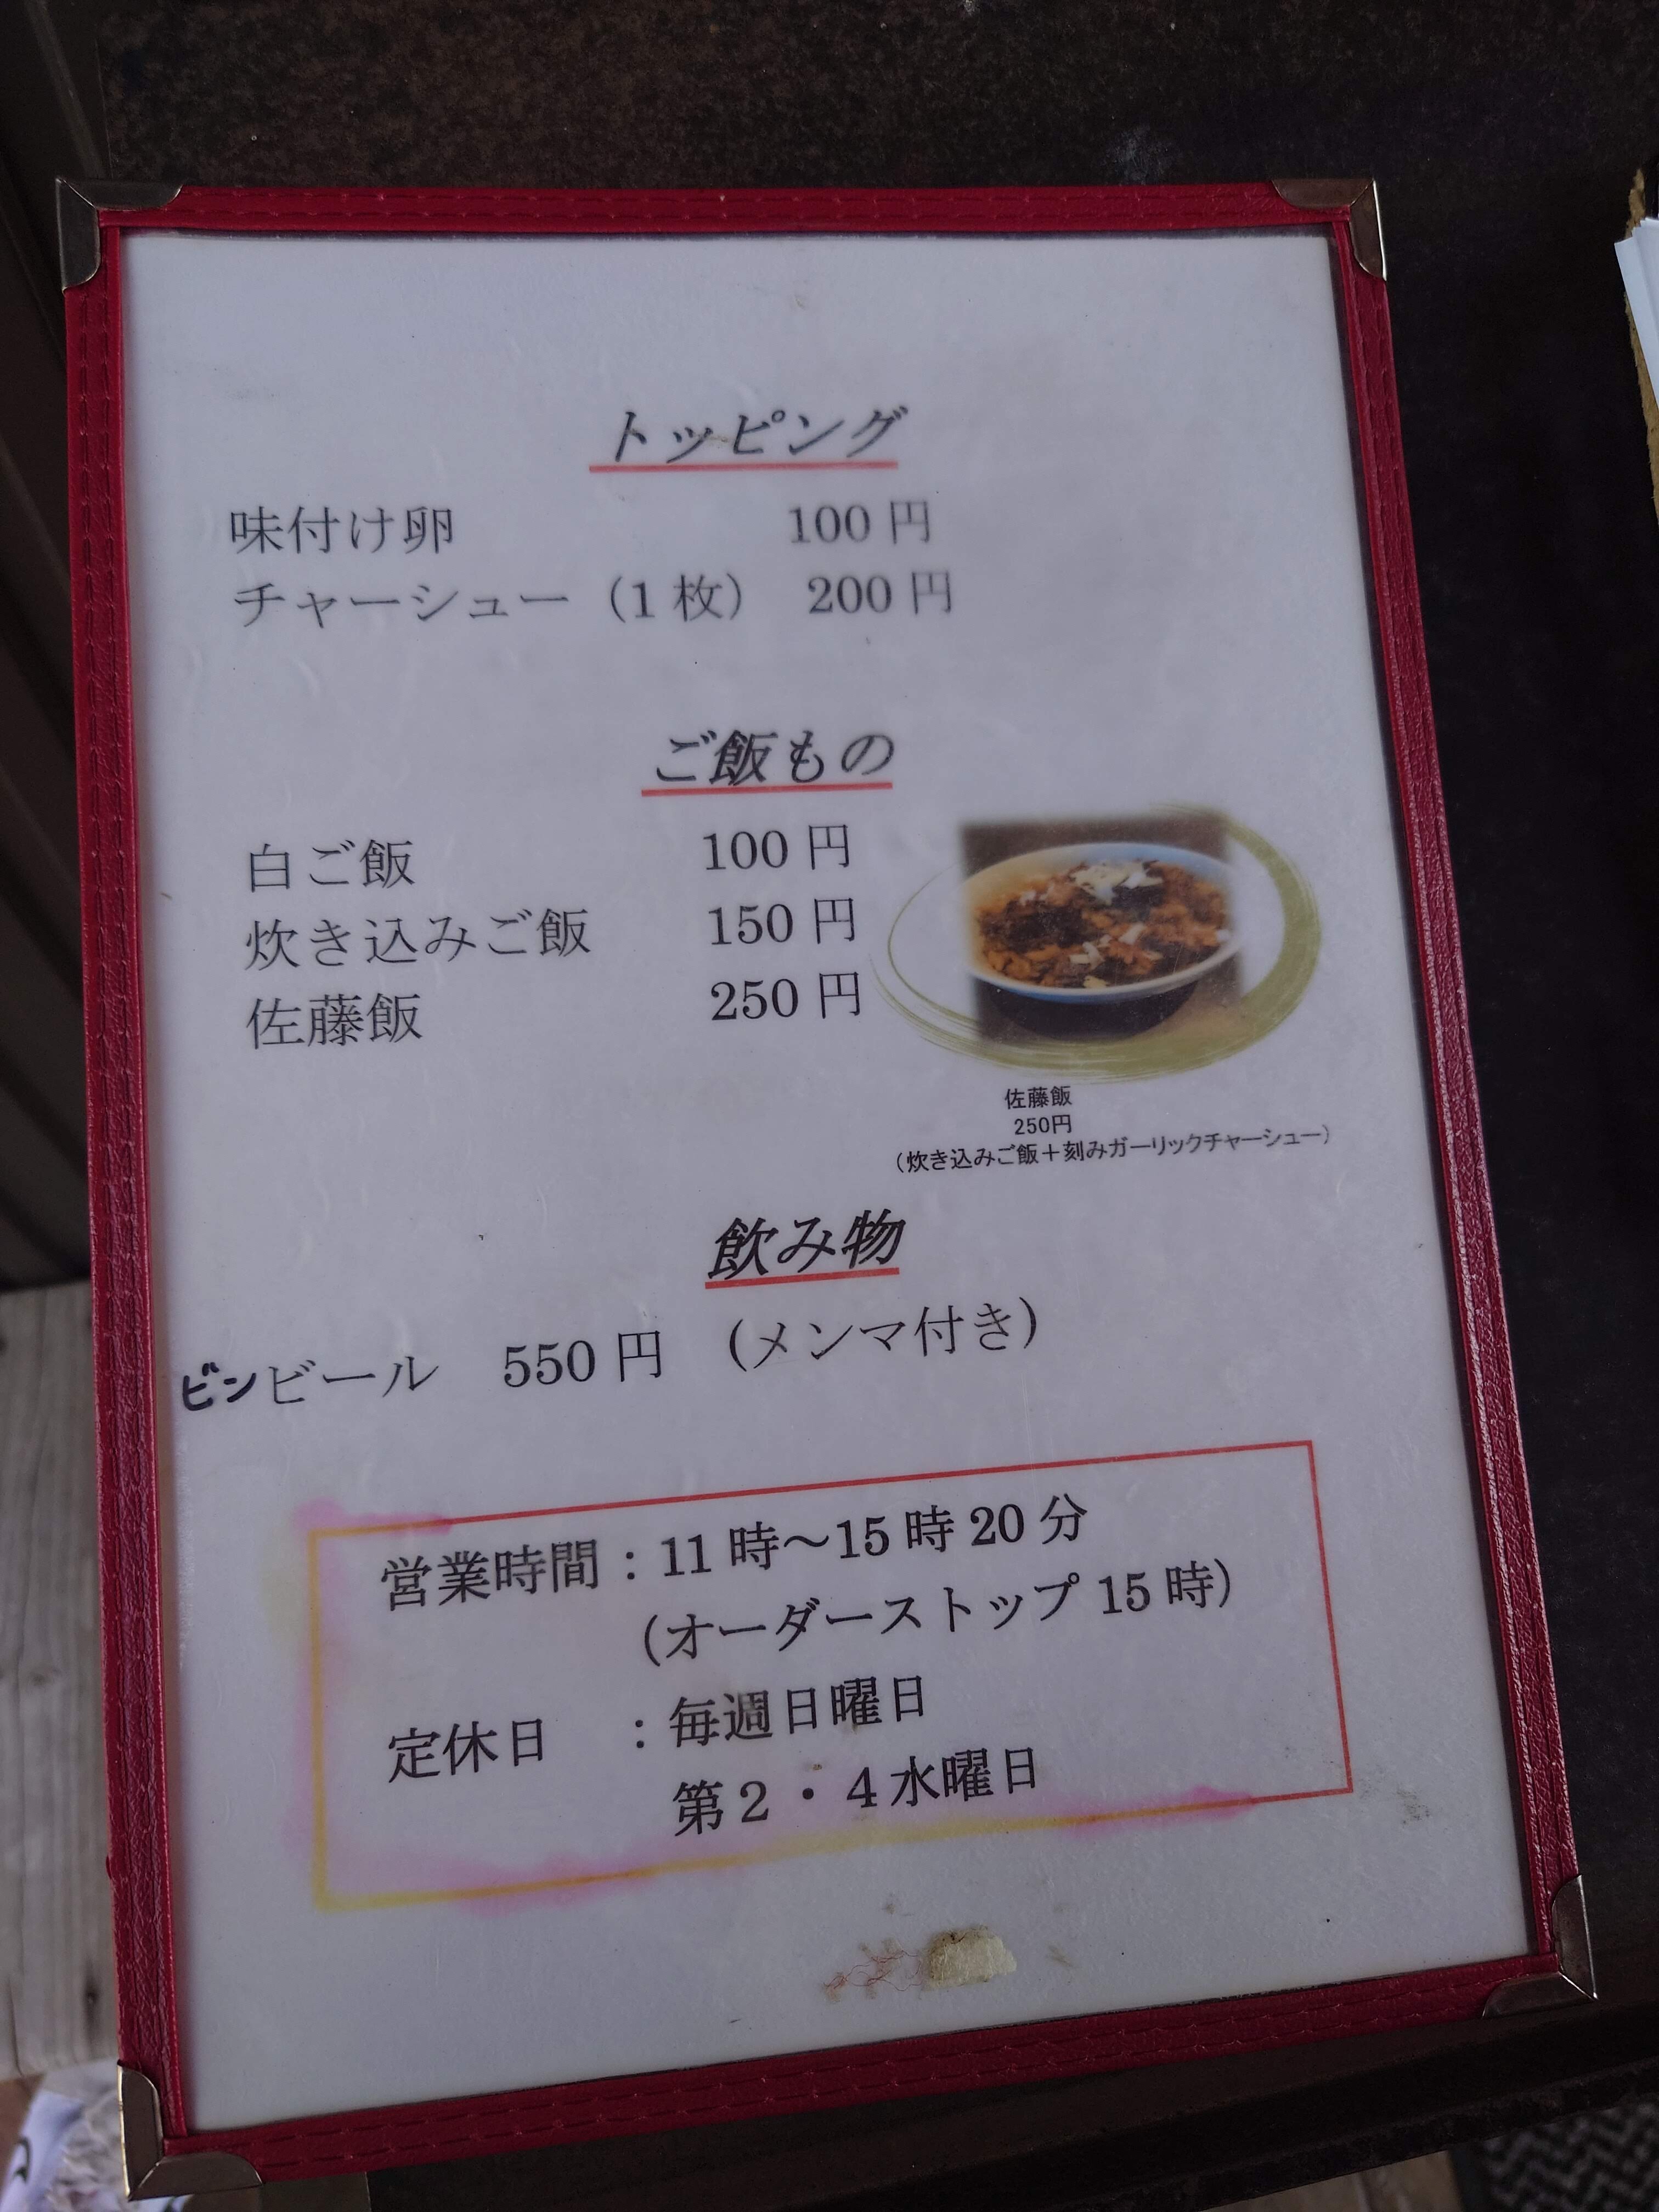 トッピング
味付け卵 100円
チャーシュー（1枚） 200円
ご飯もの
白ご飯 100円
炊き込みご飯 150円
佐藤飯 250円
佐藤飯
250円
（炊き込みご飯＋刻みガーリックチャーシュー）
飲み物
ビンビール 550円 (メンマ付き)
営業時間：11時～15時20分
(オーダーストップ 15時)
定休日 ：毎週日曜日
第2・4水曜日